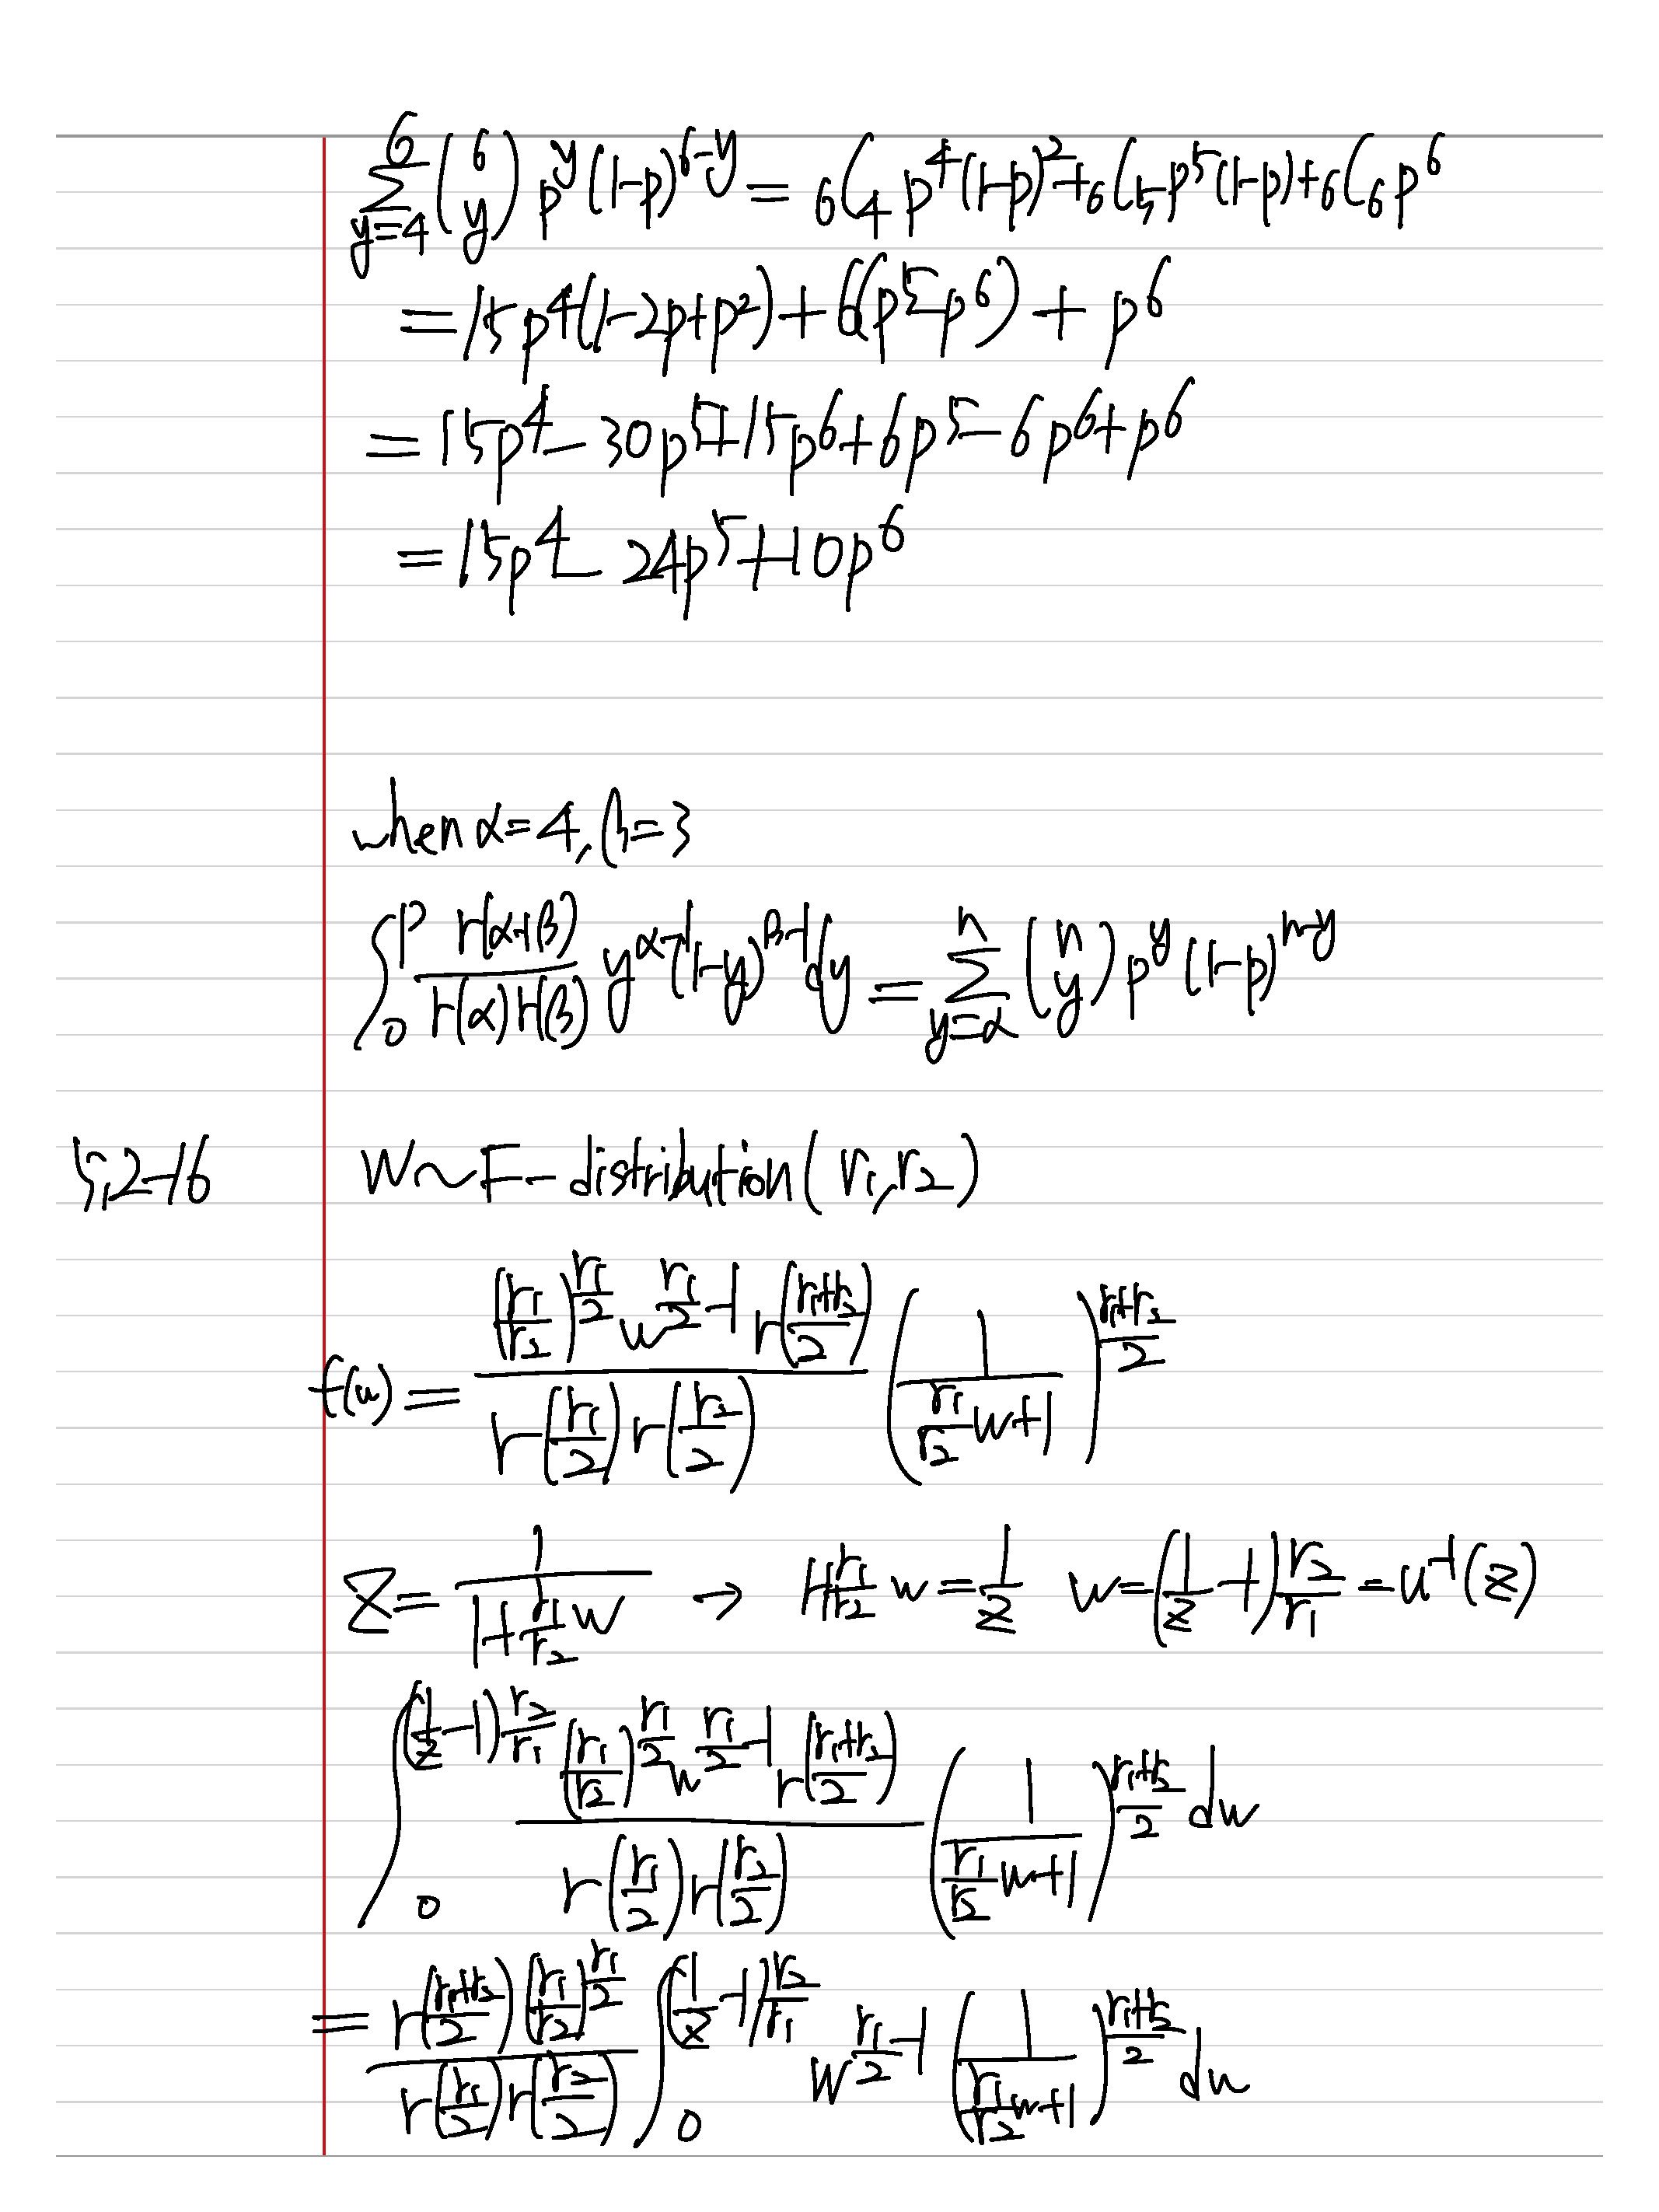 \sum_{y=4}^{6} \binom{6}{y} p^y (1-p)^{6-y} = {}_6C_4 p^4 (1-p)^2 + {}_6C_5 p^5 (1-p) + {}_6C_6 p^6
= 15p^4(1-2p+p^2) + 6(p^5-p^6) + p^6
= 15p^4 - 30p^5 + 15p^6 + 6p^5 - 6p^6 + p^6
= 15p^4 - 24p^5 + 10p^6
when α=4, β=3
\int_0^p \frac{Γ(α+β)}{Γ(α)Γ(β)} y^{α-1}(1-y)^{β-1} dy = \sum_{y=α}^{n} \binom{n}{y} p^y (1-p)^{n-y}
5.2-16 W ~ F-distribution(r_1, r_2)
f(w) = \frac{(\frac{r_1}{r_2})^{\frac{r_1}{2}} w^{\frac{r_1}{2}-1} Γ(\frac{r_1+r_2}{2})}{Γ(\frac{r_1}{2})Γ(\frac{r_2}{2})} (\frac{1}{\frac{r_1}{r_2}w+1})^{\frac{r_1+r_2}{2}}
Z = \frac{1}{1+\frac{r_1}{r_2}w} → 1+\frac{r_1}{r_2}w = \frac{1}{z} w = (\frac{1}{z}-1)\frac{r_2}{r_1} = u^{-1}(z)
\int_0^{(\frac{1}{z}-1)\frac{r_2}{r_1}} \frac{(\frac{r_1}{r_2})^{\frac{r_1}{2}} w^{\frac{r_1}{2}-1} Γ(\frac{r_1+r_2}{2})}{Γ(\frac{r_1}{2})Γ(\frac{r_2}{2})} (\frac{1}{\frac{r_1}{r_2}w+1})^{\frac{r_1+r_2}{2}} dw
= \frac{Γ(\frac{r_1+r_2}{2})(\frac{r_1}{r_2})^{\frac{r_1}{2}}}{Γ(\frac{r_1}{2})Γ(\frac{r_2}{2})} \int_0^{(\frac{1}{z}-1)\frac{r_2}{r_1}} w^{\frac{r_1}{2}-1} (\frac{1}{\frac{r_1}{r_2}w+1})^{\frac{r_1+r_2}{2}} dw